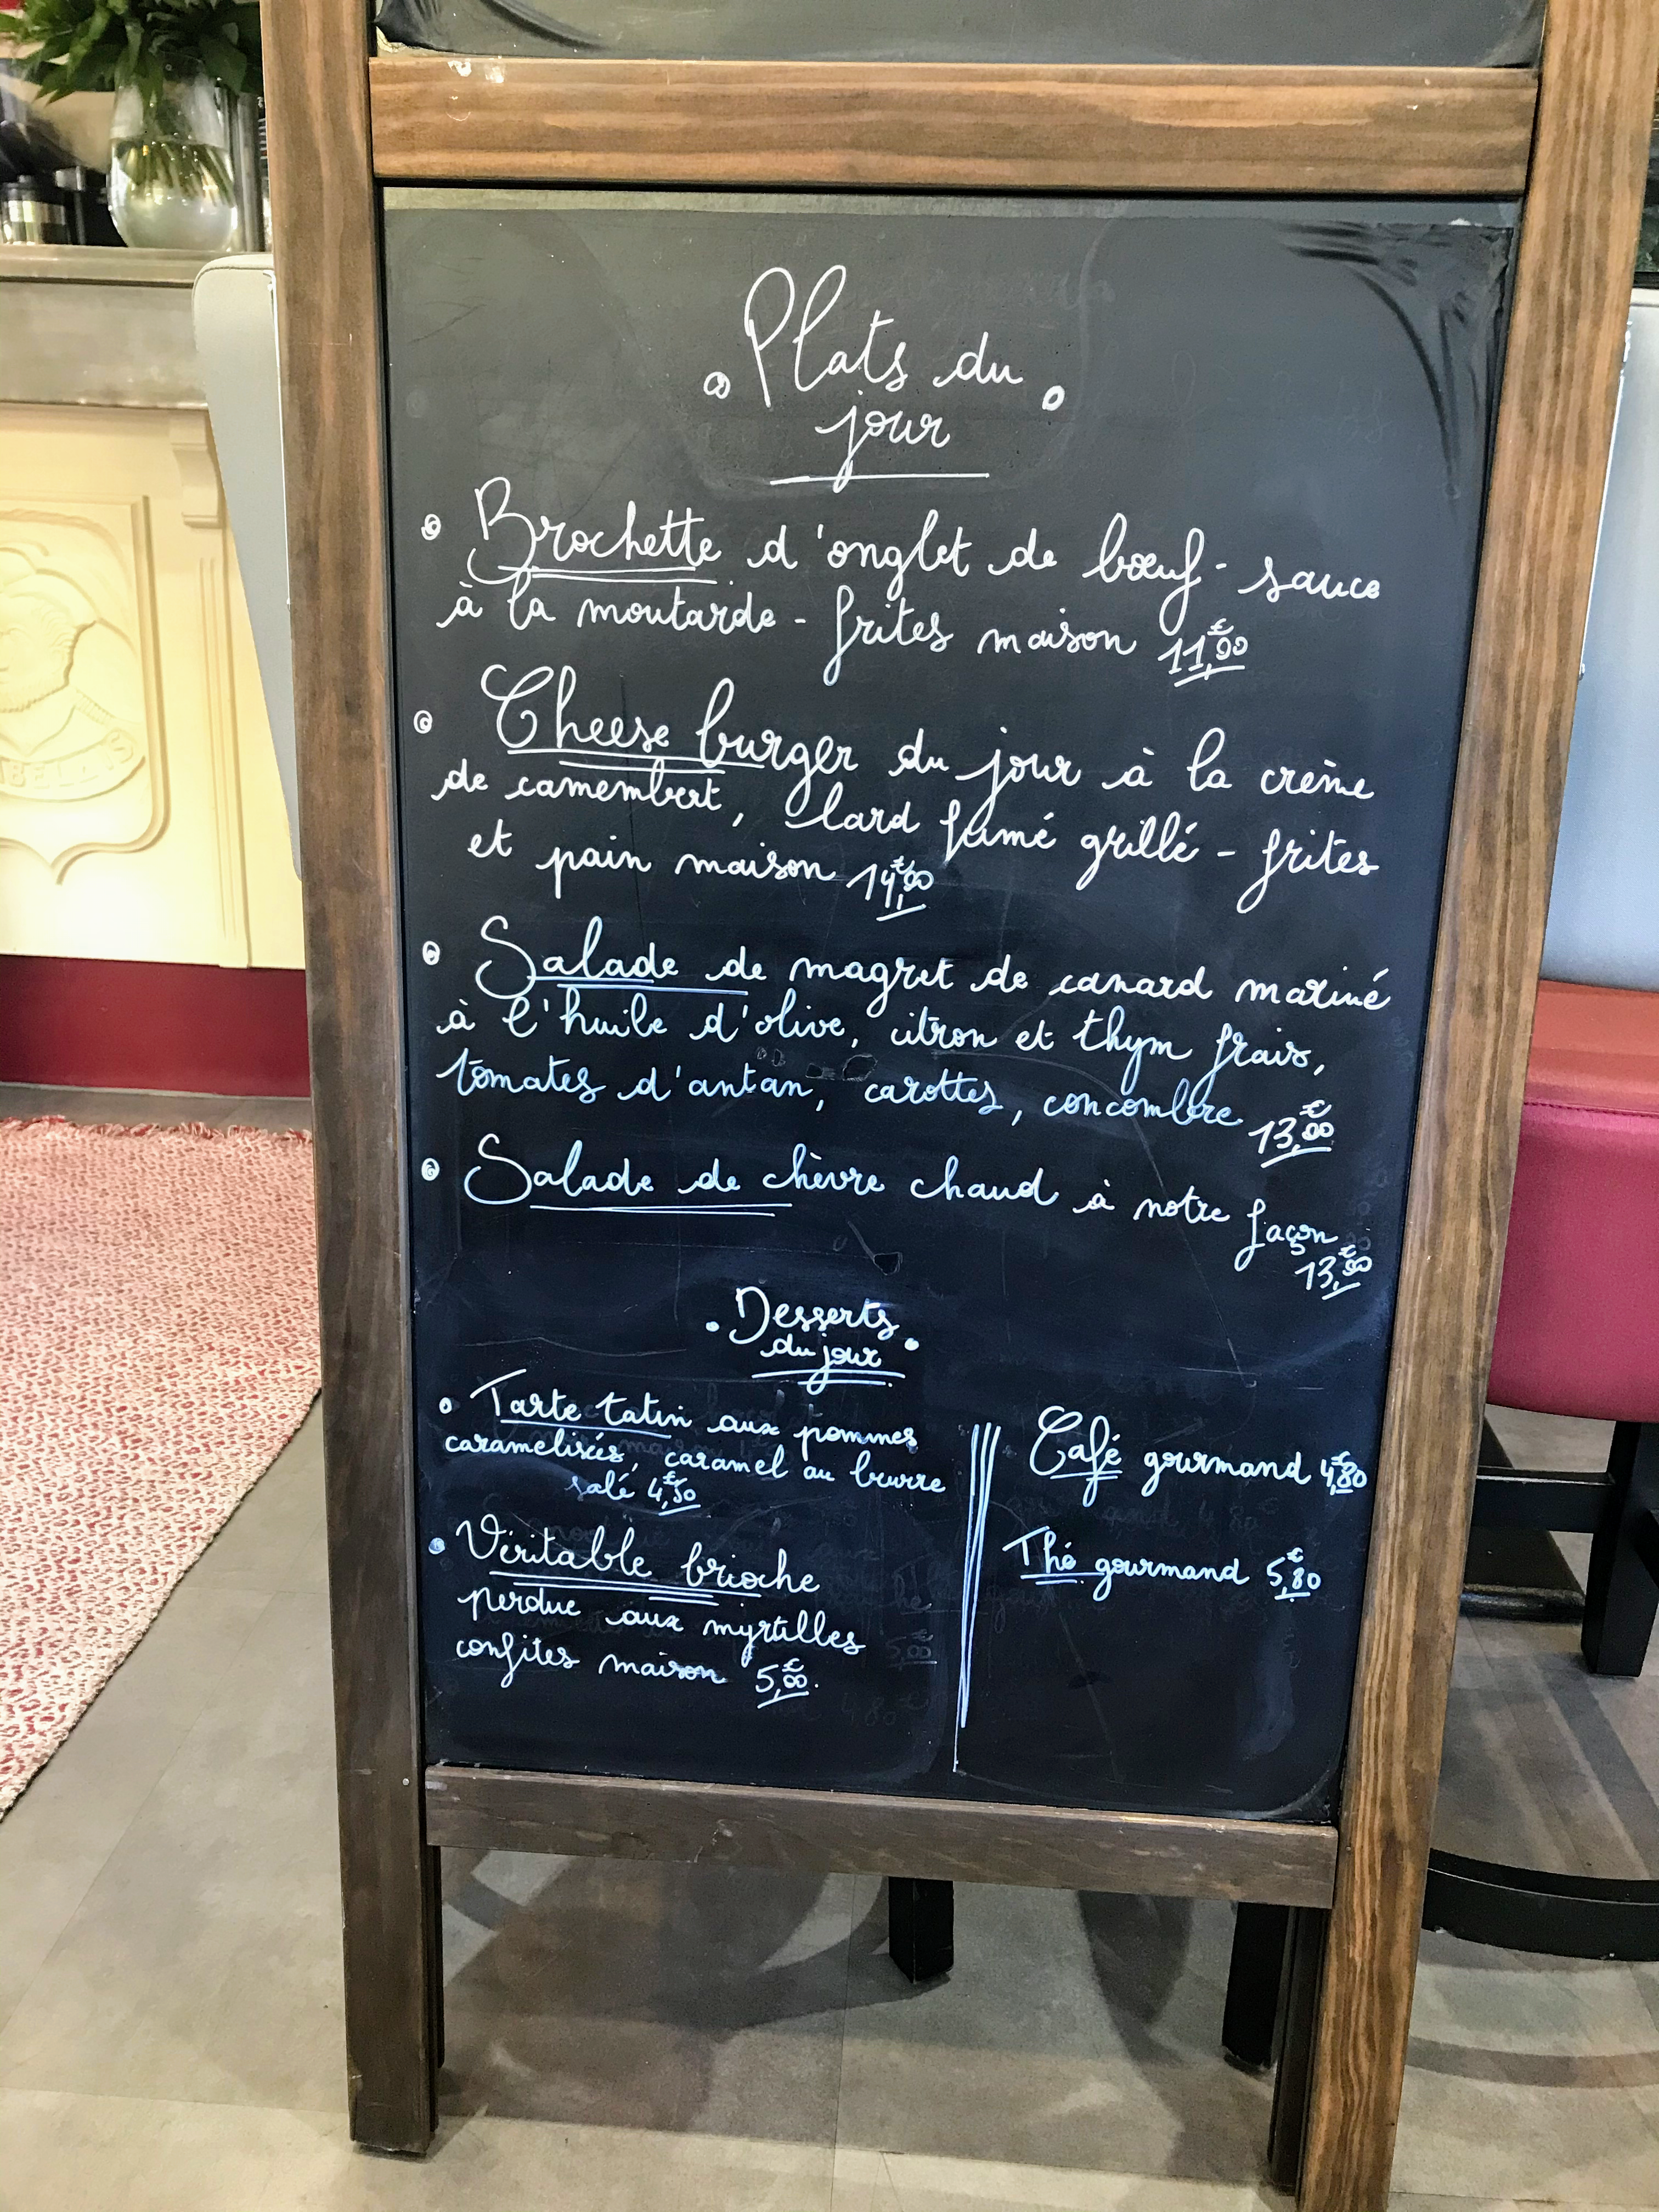 Plats du
jour
Brochette d'onglet de bœuf - sauce
à la moutarde - frites maison 11,00€
Cheese burger du jour à la crème
de camembert, lard fumé grillé - frites
et pain maison 14,00€
Salade de magret de canard mariné
à l'huile d'olive, citron et thym frais,
tomates d'antan, carottes, concombre 13,00€
Salade de chèvre chaud à notre façon
13,00€
Desserts
du jour
Tarte tatin aux pommes
caramelisées, caramel au beurre
salé 4,50€
Véritable brioche
perdue aux myrtilles
confites maison 5,00€.
Café gourmand 4,80€
Thé gourmand 5,80€